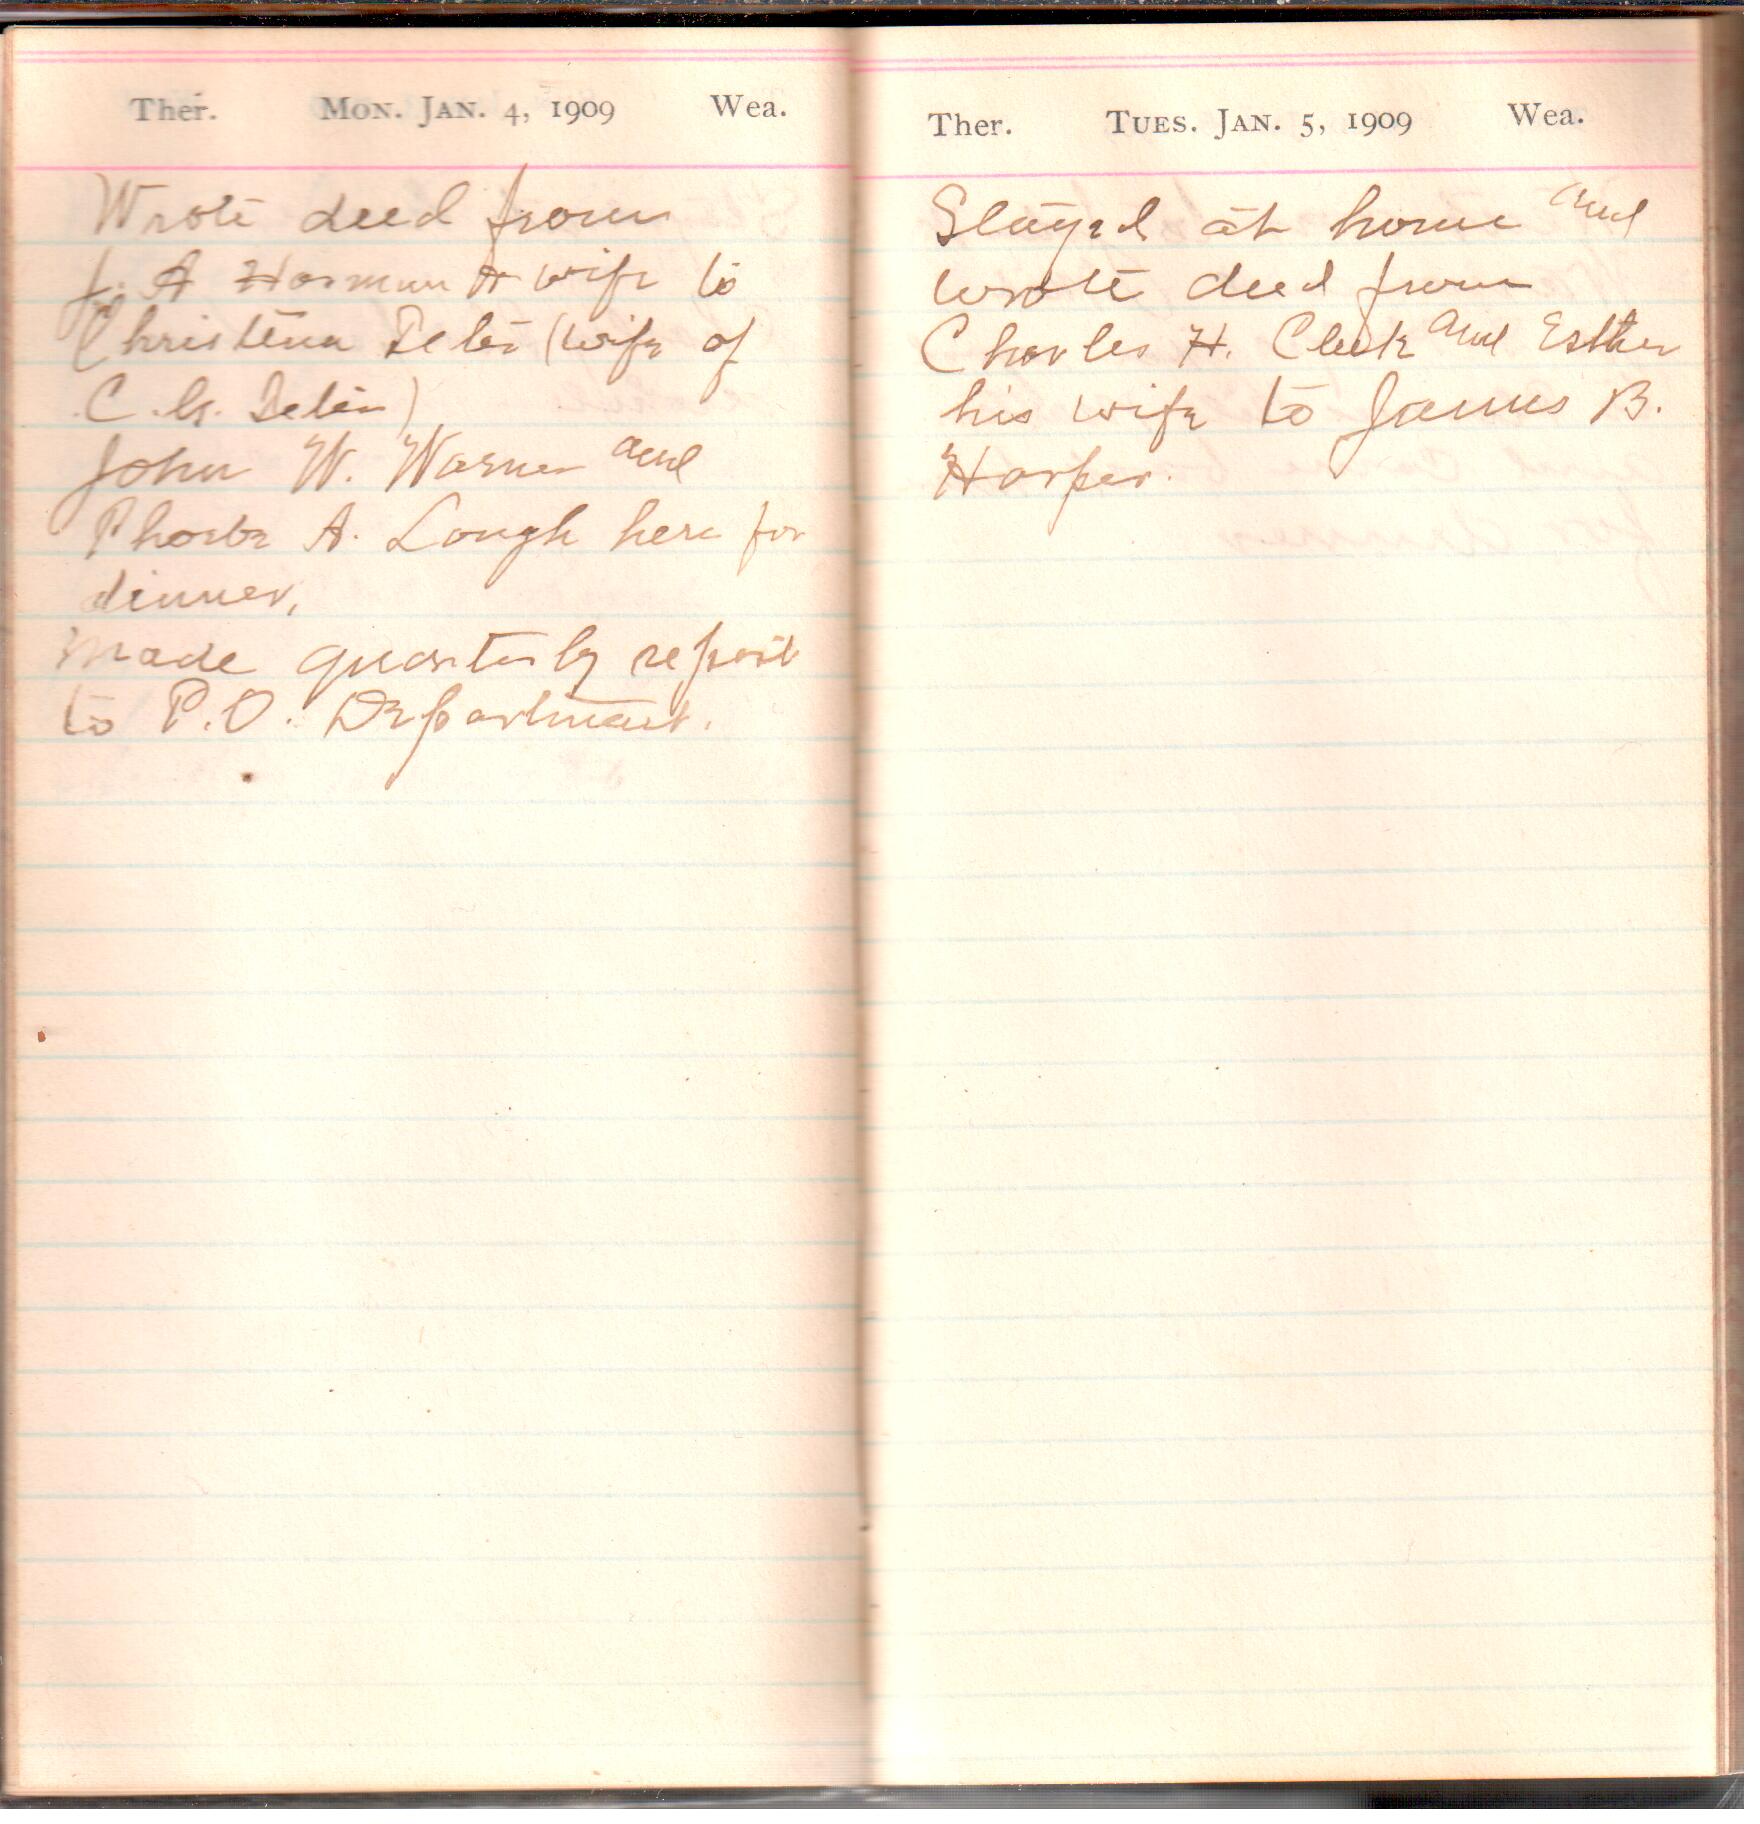 Ther. Mon. Jan. 4, 1909 Wea.
Wrote deed from
J. A Harman & wife to
Christena Teter (wife of
C. G. Teter)
John W. Warner and
Phoebe A. Lough here for
dinner,
Made quarterly report
to P.O. Department.
Ther. Tues. Jan. 5, 1909 Wea.
Stayed at home and
wrote deed from
Charles H. and Esther
his wife to James B.
Harper.